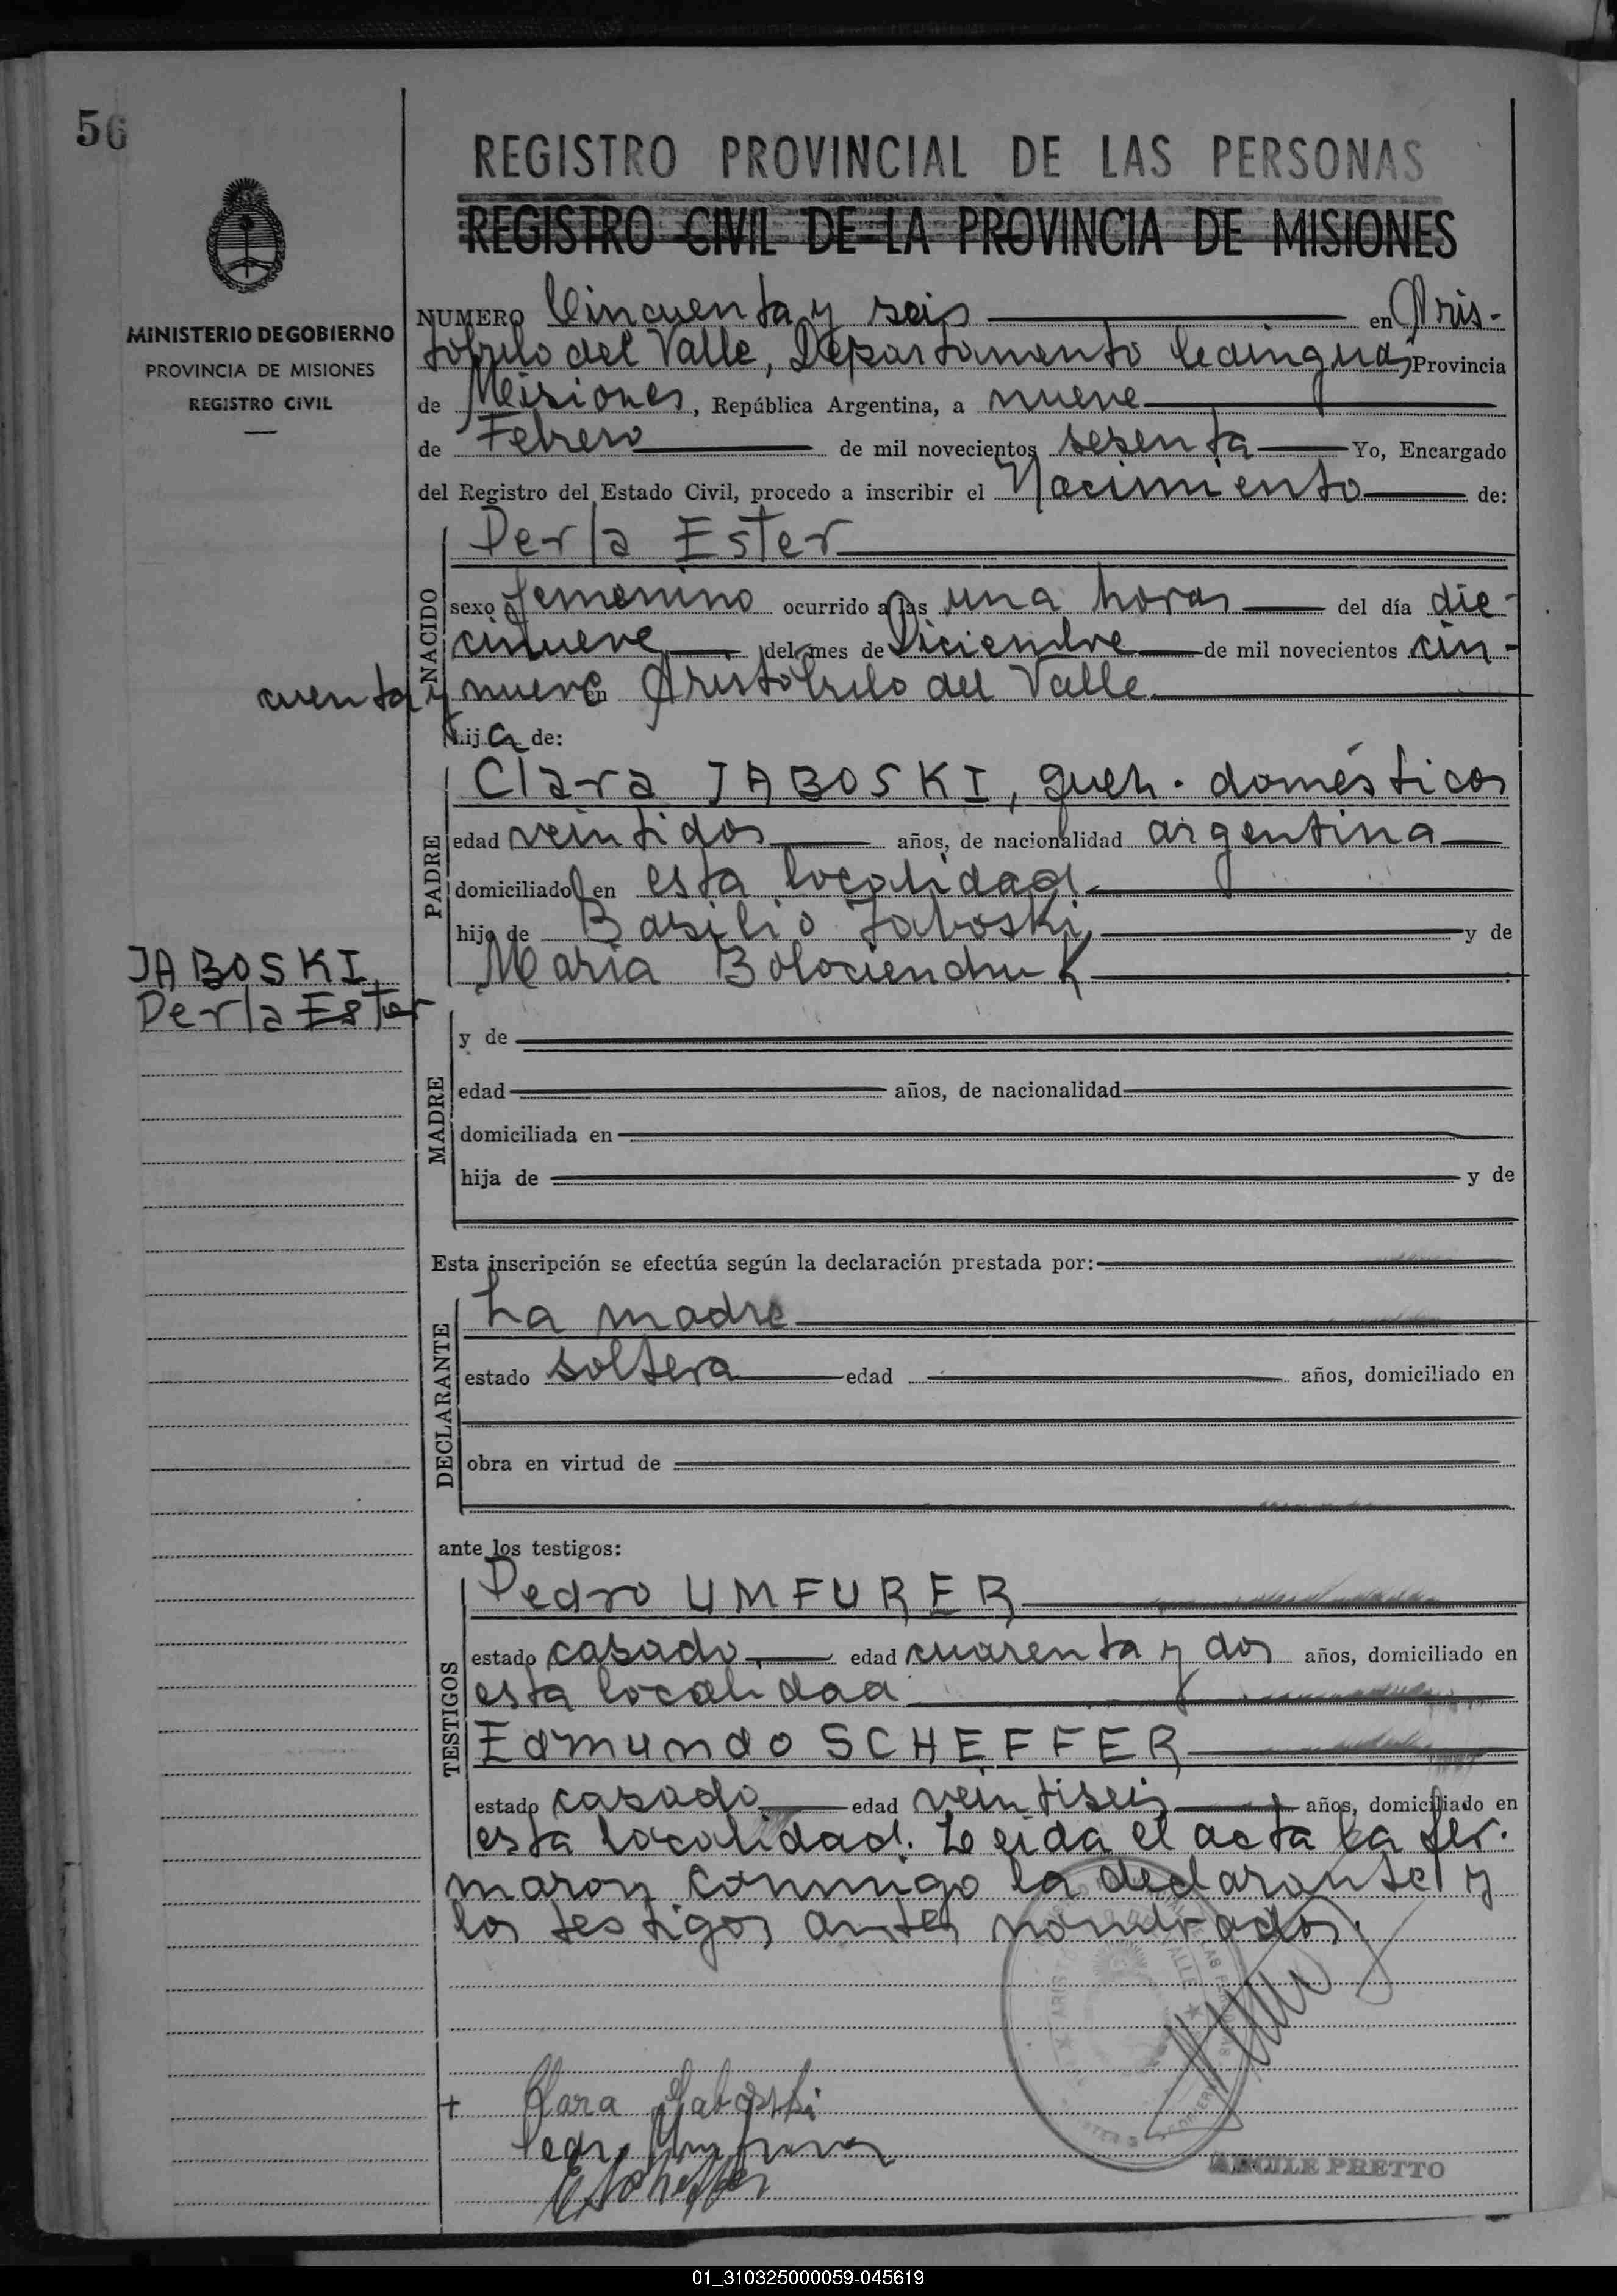 56
REGISTRO PROVINCIAL DE LAS PERSONAS
REGISTRO CIVIL DE LA PROVINCIA DE MISIONES
MINISTERIO DE GOBIERNO
PROVINCIA DE MISIONES
REGISTRO CIVIL
NUMERO Cincuenta y seis en Aris-
tóbulo del Valle, Departamento Cainguás Provincia
de Misiones, República Argentina, a nueve
de Febrero de mil novecientos sesenta Yo, Encargado
del Registro del Estado Civil, procedo a inscribir el Nacimiento de:
NACIDO
Perla Ester
sexo femenino ocurrido a las una horas del día die-
cinueve del mes de Diciembre de mil novecientos cin-
cuenta y nueve en Aristóbulo del Valle.
hija de:
PADRE
Clara JABOSKI, queh. domésticos
edad veintidos años, de nacionalidad argentina
domiciliado en esta localidad.
hijo de Basilio Jaboski, y de
Maria Bolociendhuk
JABOSKI,
Perla Ester
MADRE
y de
edad años, de nacionalidad
domiciliada en
hija de y de
Esta inscripción se efectúa según la declaración prestada por:
DECLARANTE
La madre
estado soltera edad años, domiciliado en
obra en virtud de
ante los testigos:
TESTIGOS
Pedro UMFURER
estado casado, edad cuarenta y dos años, domiciliado en
esta localidad
Edmundo SCHEFFER
estado casado edad veintiseis años, domiciliado en
esta localidad. Leida el acta la fir.
maron conmigo la declarante y
los testigos antes nombrados.
Clara Jaboski
Pedro Umfurer
E Scheffer
PRETTO
01_310325000059-045619